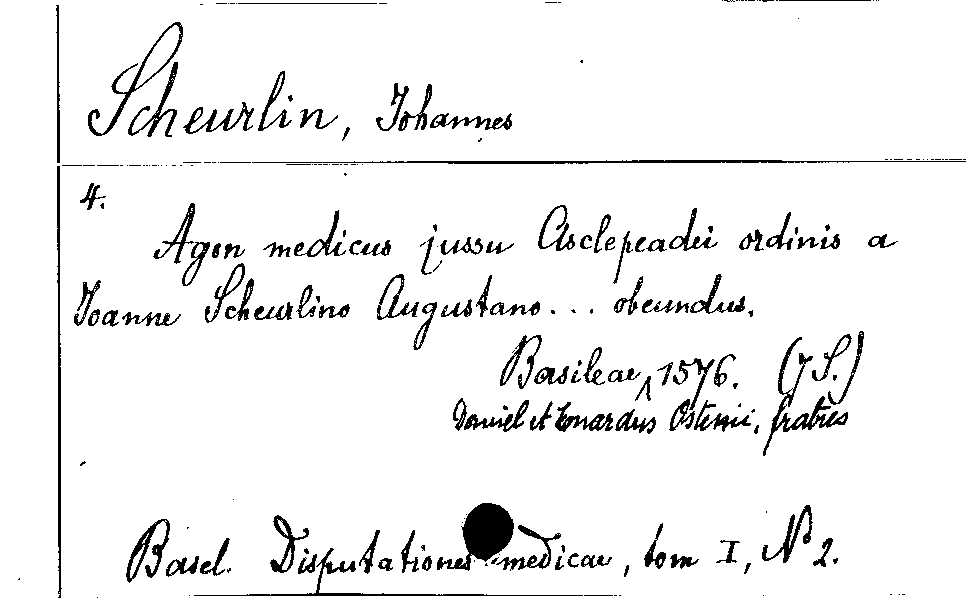 Scheurlin, Johannes
4.
Agon medicus jussu Asclepeadei ordinis a
Joanne Scheurlino Augustano... obeundus.
Basileae, 1576. (7 S.)
Daniel et Leonardus Ostenii, fratres
Basel. Disputationes medicae, tom I, N° 2.